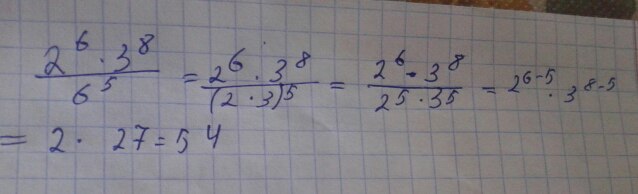 2⁶ · 3⁸ / 6⁵ = 2⁶ · 3⁸ / (2 · 3)⁵ = 2⁶ · 3⁸ / 2⁵ · 3⁵ = 2⁶⁻⁵ · 3⁸⁻⁵
= 2 · 27 = 54